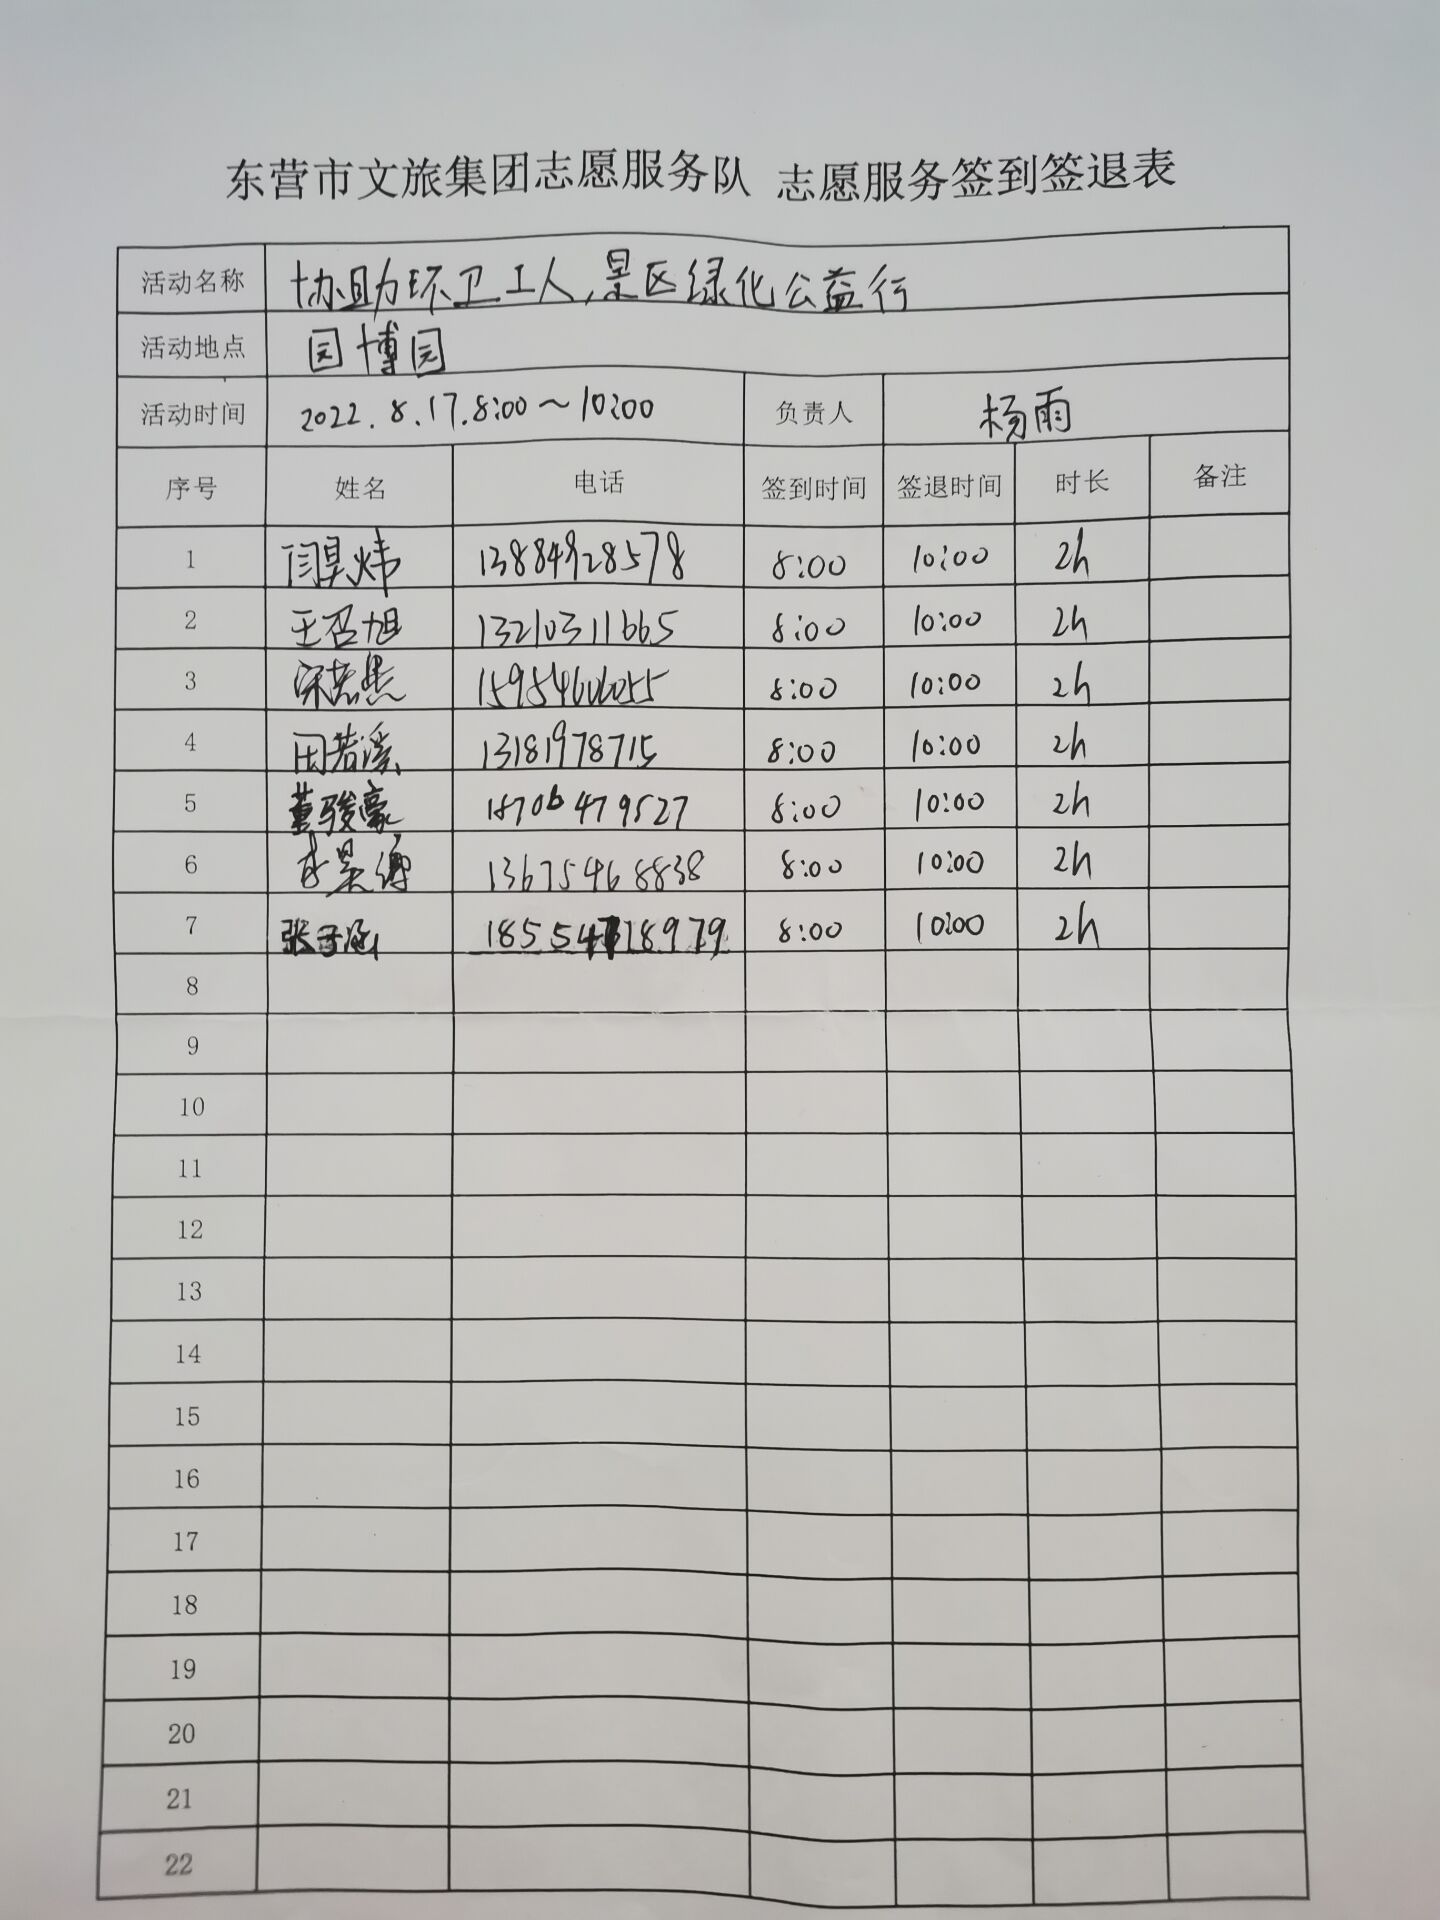 东营市文旅集团志愿服务队 志愿服务签到签退表
活动名称 协助环卫工人,景区绿化公益行
活动地点 园博园
活动时间 2022.8.17.8:00~10:00 负责人 杨雨
序号 姓名 电话 签到时间 签退时间 时长 备注
1 闫昊炜 13884928578 8:00 10:00 2h
2 王召旭 13210311665 8:00 10:00 2h
3 宋若愚 15954606055 8:00 10:00 2h
4 田若溪 13181978715 8:00 10:00 2h
5 董骏豪 18706479527 8:00 10:00 2h
6 13675468838 8:00 10:00 2h
7 张子涵 8:00 10:00 2h
8
9
10
11
12
13
14
15
16
17
18
19
20
21
22